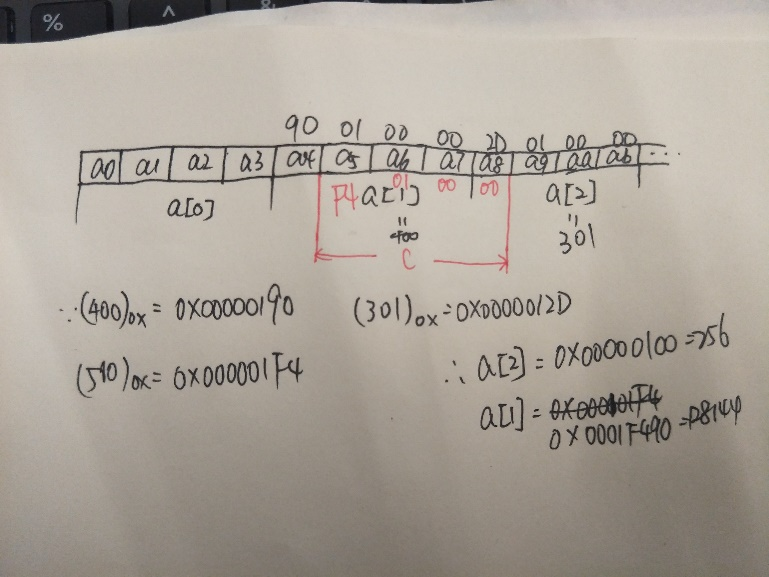 %
90 01 00 00 2D 01 00 00
a0 a1 a2 a3 a4 a5 a6 a7 a8 a9 aa ab ...
F4 01 00 00
a[0] a[1] a[2]
=
400
=
301
C
∵(400)0x = 0X00000190
(301)0x = 0X0000012D
(500)0x = 0X000001F4
∴ a[2] = 0X00000100 = 256
a[1] = 0X000001F4
0X0001F490 = 128144